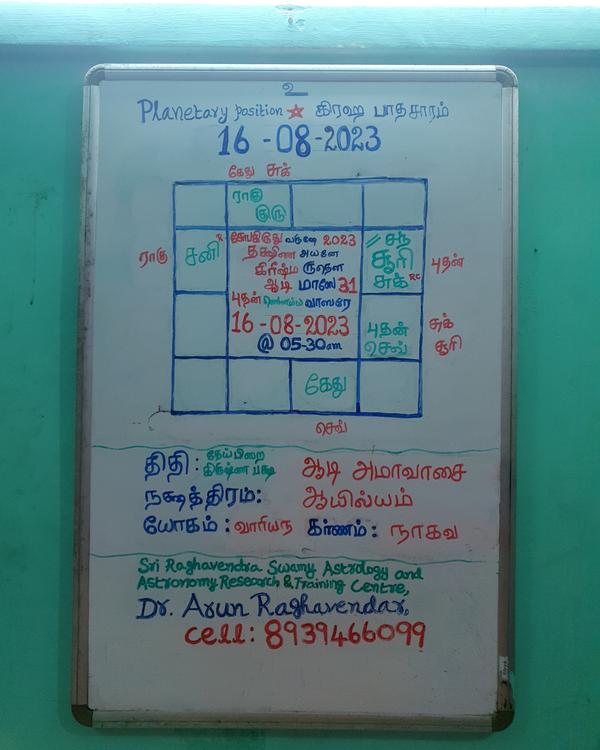 உ
Planetary position ☆ கிரஹ பாதசாரம்
16-08-2023
கேது சுக்
ராகு
குரு
ராகு
சனி R
சோபகிருது வருஷே 2023
தக்ஷிண அயனே
கிரீஷ்ம ருதௌ
ஆடி மாஸே 31
புதன் வாஸரே
16-08-2023
@ 05-30am
// சந்
சூரி
சுக் RC
புதன்
புதன்
செவ்
சுக்
சூரி
கேது
செவ்
திதி : தேய்பிறை கிருஷ்ண பக்ஷ ஆடி அமாவாசை
நக்ஷத்திரம்: ஆயில்யம்
யோகம் : வாரியந கர்ணம் : நாகவ
Sri Raghavendra Swamy Astrology and
Astronomy Research & Training Centre,
Dr. Arun Raghavendar,
cell: 8939466099